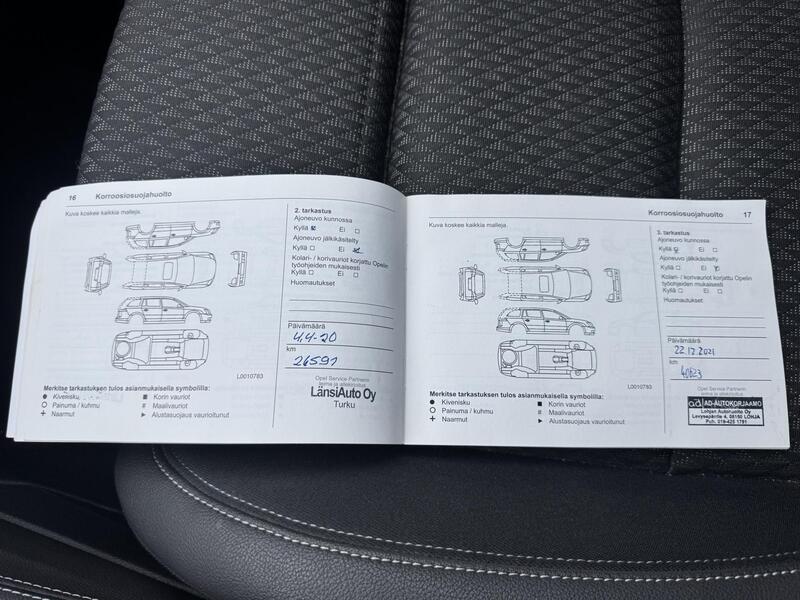 16 Korroosiosuojahuolto
Kuva koskee kaikkia malleja.
L0010783
Merkitse tarkastuksen tulos asianmukaisella symbolilla:
Kivenisku
Painuma / kuhmu
Naarmut
Korin vauriot
Maalivauriot
Alustasuojaus vaurioitunut
2. tarkastus
Ajoneuvo kunnossa
Kyllä Ei
Ajoneuvo jälkikäsitelty
Kyllä Ei
Kolari- / korivauriot korjattu Opelin
työohjeiden mukaisesti
Kyllä Ei
Huomautukset
Päivämäärä
4.4-20
km
26591
Opel Service Partnerin
leima ja allekirjoitus
LänsiAuto Oy
Turku
Korroosiosuojahuolto 17
Kuva koskee kaikkia malleja.
L0010783
Merkitse tarkastuksen tulos asianmukaisella symbolilla:
Kivenisku
Painuma / kuhmu
Naarmut
Korin vauriot
Maalivauriot
Alustasuojaus vaurioitunut
3. tarkastus
Ajoneuvo kunnossa
Kyllä Ei
Ajoneuvo jälkikäsitelty
Kyllä Ei
Kolari- / korivauriot korjattu Opelin
työohjeiden mukaisesti
Kyllä Ei
Huomautukset
Päivämäärä
22.12.2021
km
40623
Opel Service Partnerin
leima ja allekirjoitus
ad AD-AUTOKORJAAMO
Lohjan Autohuolto Oy
Levysepäntie 4, 08150 LOHJA
Puh. 019-425 1791